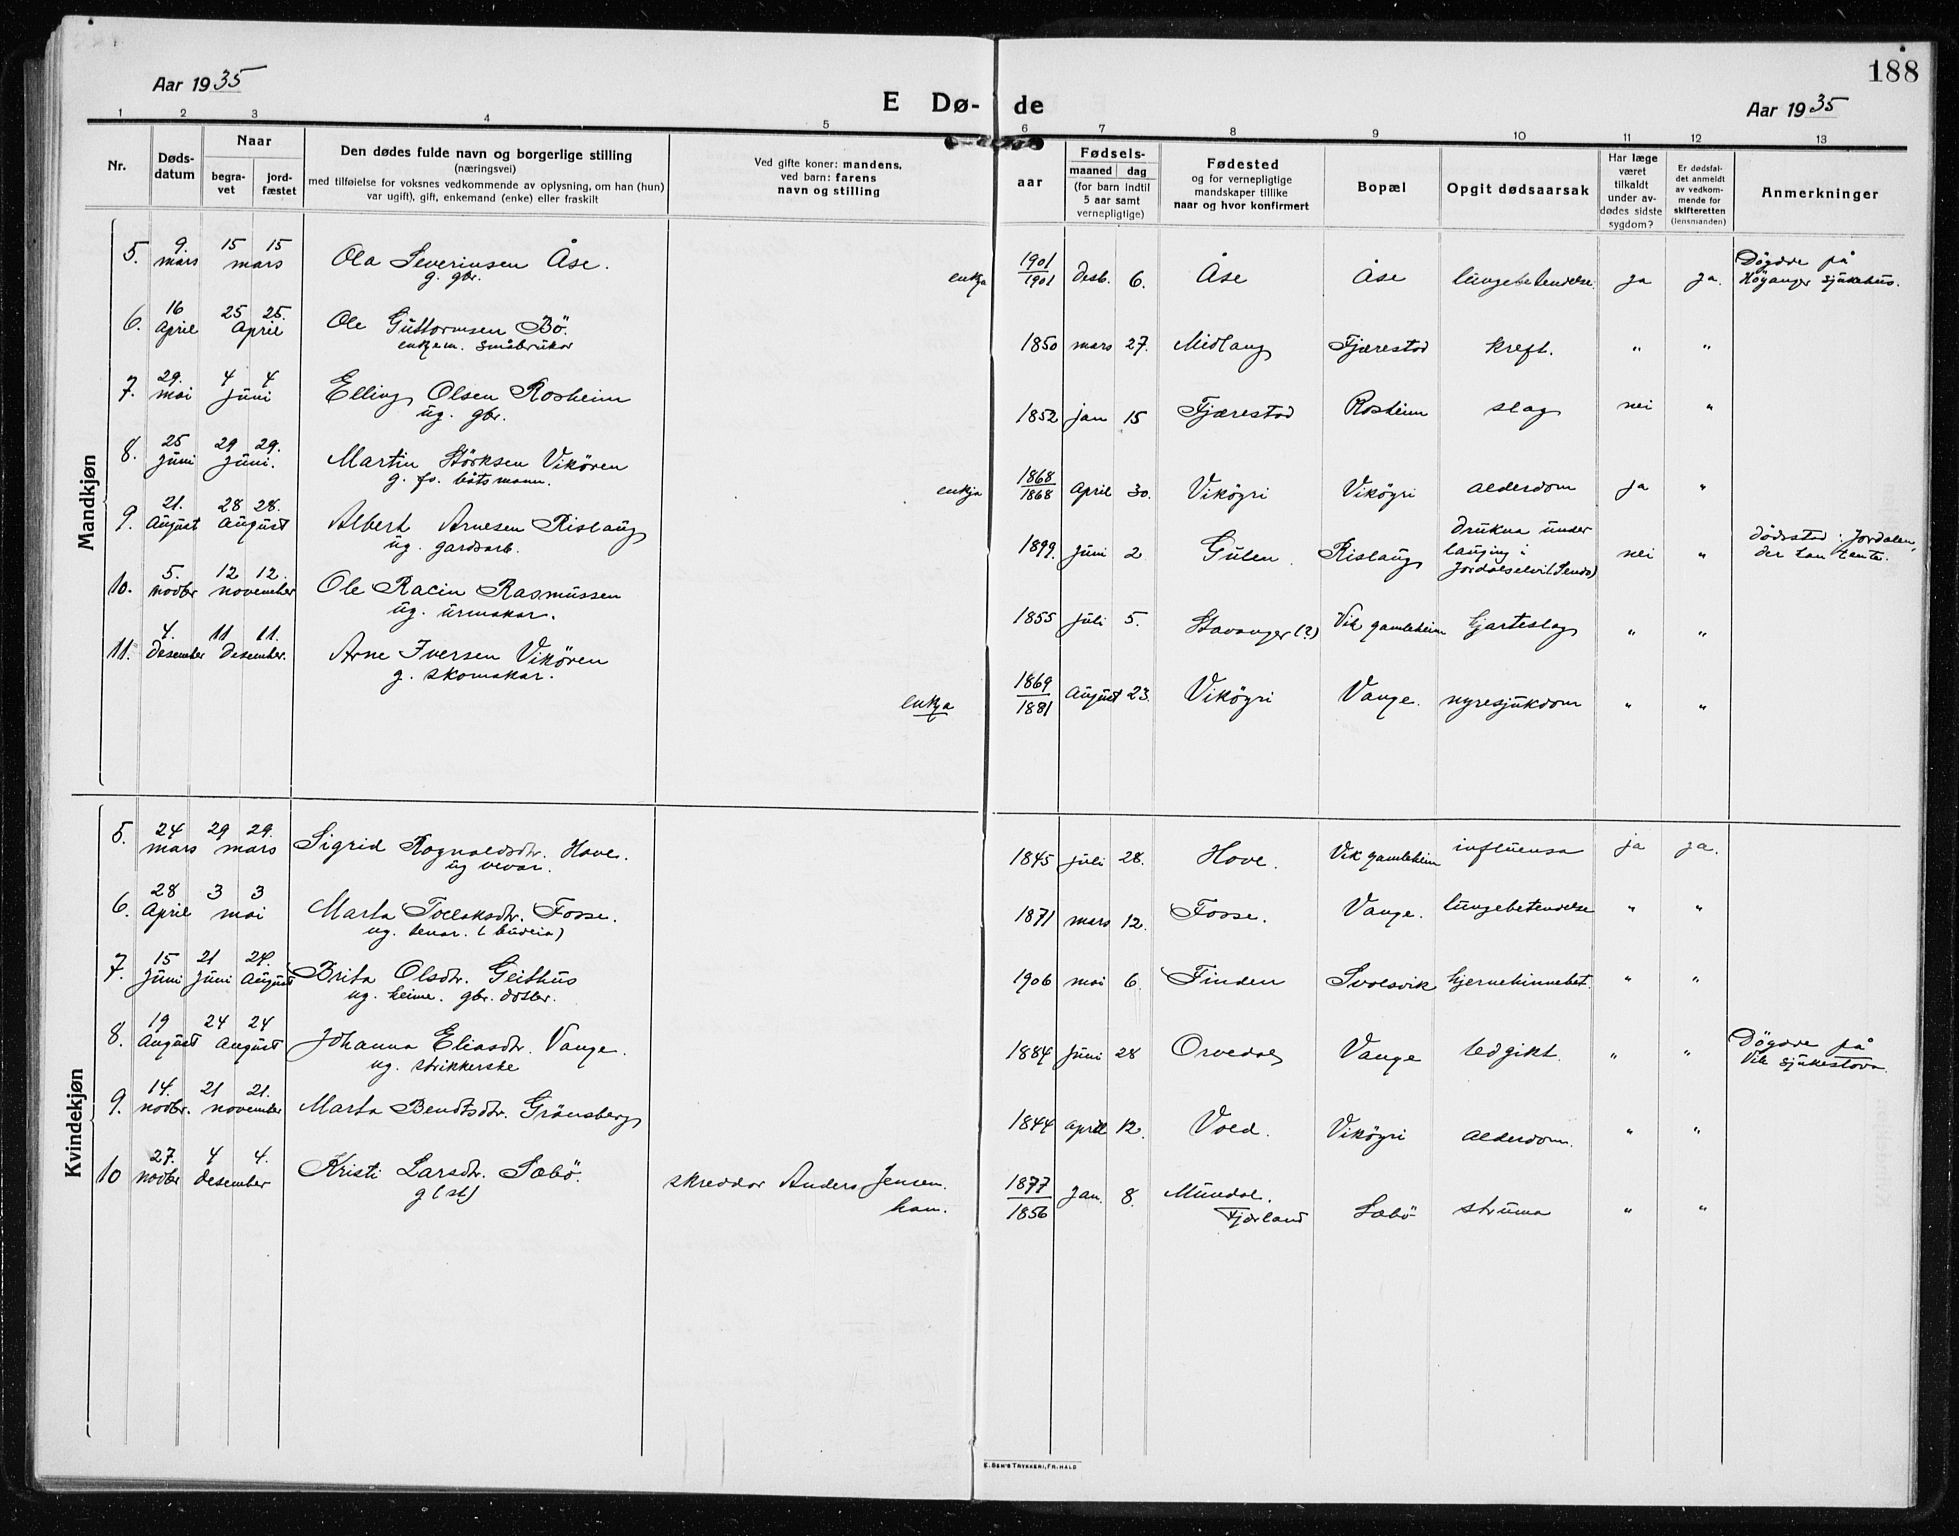 188
Aar 1935
E Dø- de
Aar 1935
1 2 3 4 5 6 7 8 9 10 11 12 13
Nr.
Døds-
datum
Naar
begra-
vet
jord-
fæstet
Den dødes fulde navn og borgerlige stilling
(næringsvei)
med tilføielse for voksnes vedkommende av oplysning, om han (hun)
var ugift), gift, enkemand (enke) eller fraskilt
Ved gifte koner: mandens,
ved barn: farens
navn og stilling
aar
Fødsels-
maaned dag
(for barn indtil
5 aar samt
vernepligtige)
Fødested
og for vernepligtige
mandskaper tillike
naar og hvor konfirmert
Bopæl
Opgit dødsaarsak
Har læge
været
tilkaldt
under av-
dødes sidste
sygdom?
Er dødsfal-
det anmeldt
av vedkom-
mende for
skifteretten
(lensmanden)
Anmerkninger
Mandkjøn
5. 9. mars 15 15 mars Ola Severinsen Åse. enkja 1901 desb. 6. Åse Åse lungebetendelse. ja ja. Døyde på
g. gbr. 1901 Høyanger sjukehus.
6. 16 April 25 25. April Ole Guttormsen Bö. 1850 mars 27. Midlang Fjærestad kreft. " "
enkjem. småbrukar
7. 29. mai 4 4 Juni Elling Olsen Rosheim 1852 jan 15 Fjærestad Rosheim slag nei "
ug. gbr.
8. 25 Juni 29 29. Juni. Martin Störksen Vikören enkja 1868 April 30. Vikøyri Vikøyri alderdom ja "
g. fv. båtsmann. 1868
9. 21. August 28 28. August Albert Arnesen Rislaug 1899. Juni 2 Gulen Rislaug drukna under nei " dødsstad: Jordalen,
ug. gardsarb. lauging i der han tente.
Jordalselvi
10. 5. novbr 12 12. november Ole Racin Rasmussen 1855 juli 5. Stavanger (?) Vik gamleheim hjarteslag " "
ug. urmakar.
11. 4. desember 11 11. desember. Arne Iversen Vikören enkja 1869 August 23. Vikøyri Vange. nyresjukdom " "
g. skomakar. 1881
Kvindekjøn
5. 24 mars 29 29. mars Sigrid Ragnvaldsdtr. Hove. 1845 juli 28. Hove. Vik gamleheim influensa ja ja.
ug vevar.
6. 28 April 3 3 mai Marta Tollaksdtr. Fosse. 1871 mars 12. Fosse. Vange. lungebetendelse " "
ug. tenar. (budeia)
7. 15 Juni 21 Juni 24. August Brita Olsdtr. Geithus 1906 mai 6. Finden Svolsvik hjernehinnebet. " "
ug. heime. gbr. dotter.
8. 19 August 24 24 August Johanna Eliasdtr. Vange. 1884 Juni 28 Orvedal Vange ledgikt. " " Døyde på
ug. strikkerske Vik sjukestova.
9. 14. novbr. 21 21. november Marta Bendtsdtr. Grönsberg 1844 april 12. Vold. Vikøyri alderdom. " "
10 27. novbr 4 4. desember Kristi Larsdtr. Sæbö. skreddar Anders Jensen. 1877 Jan. 8. Mundal. Sæbö struma " "
g (st) ham. 1856 Fjærland
E. SEM'S TRYKKERI, FR.HALD